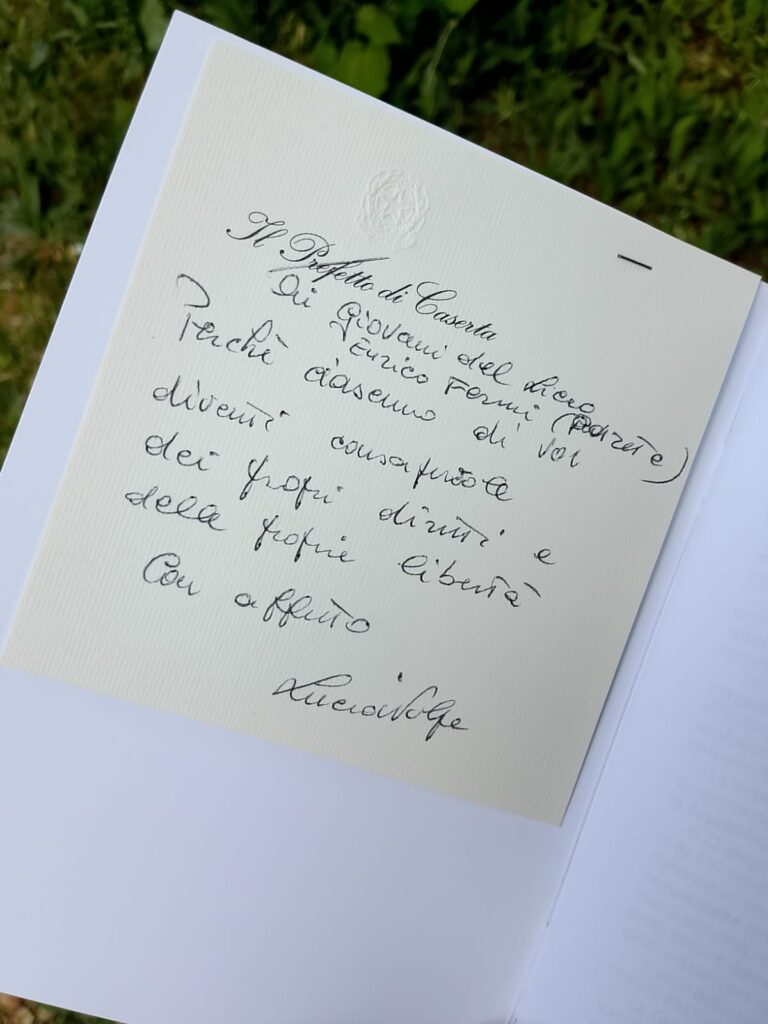 Il Prefetto di Caserta
Ai Giovani del Liceo
Enrico Fermi (Parete)
Perchè ciascuno di voi
diventi consapevole
dei propri diritti e
delle proprie libertà
Con affetto
Lucia Volpe